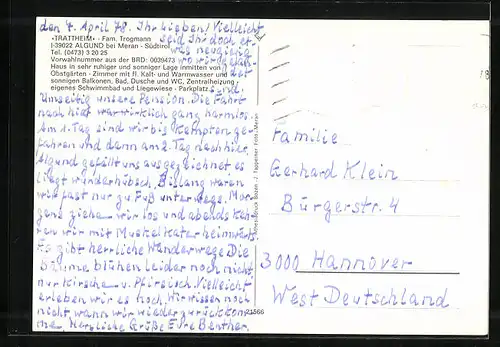 den 7. April 78. Ihr Lieben! Vielleicht
seid Ihr doch et-
was neugierig
wo wir gelan-
det
sind.
»TRATTHEIM« - Fam. Trogmann
I-39022 ALGUND bei Meran - Südtirol
Tel. (0473) 3 20 25
Vorwahlnummer aus der BRD: 0039473
Haus in sehr ruhiger und sonniger Lage inmitten von
Obstgärten - Zimmer mit fl. Kalt- und Warmwasser und
sonnigen Balkonen, Bad, Dusche und WC, Zentralheizung -
eigenes Schwimmbad und Liegewiese - Parkplatz
Umseitig unsere Pension. Die Fahrt
nach hier war wirklich ganz harmlos.
Am 1. Tag sind wir bis Kempten ge-
fahren und dann am 2. Tag nach hier.
Algund gefällt uns ausgezeichnet es
liegt wunderhübsch. Bislang waren
wir fast nur zu Fuß unterwegs. Mor-
gens ziehen wir los und abends keh-
ren wir mit Muskelkater heimwärts.
Es gibt herrliche Wanderwege. Die
Bäume blühen leider noch nicht
nur Kirsche u. Pfirsich. Vielleicht
erleben wir es noch. Wir wissen noch
nicht, wann wir wieder zurückkom-
me. Herzliche Grüße Eure Benther.
Bozen / Tappeiner Foto, Meran
21566
Familie
Gerhard Klein
Bürgerstr. 4
3000 Hannover
West Deutschland